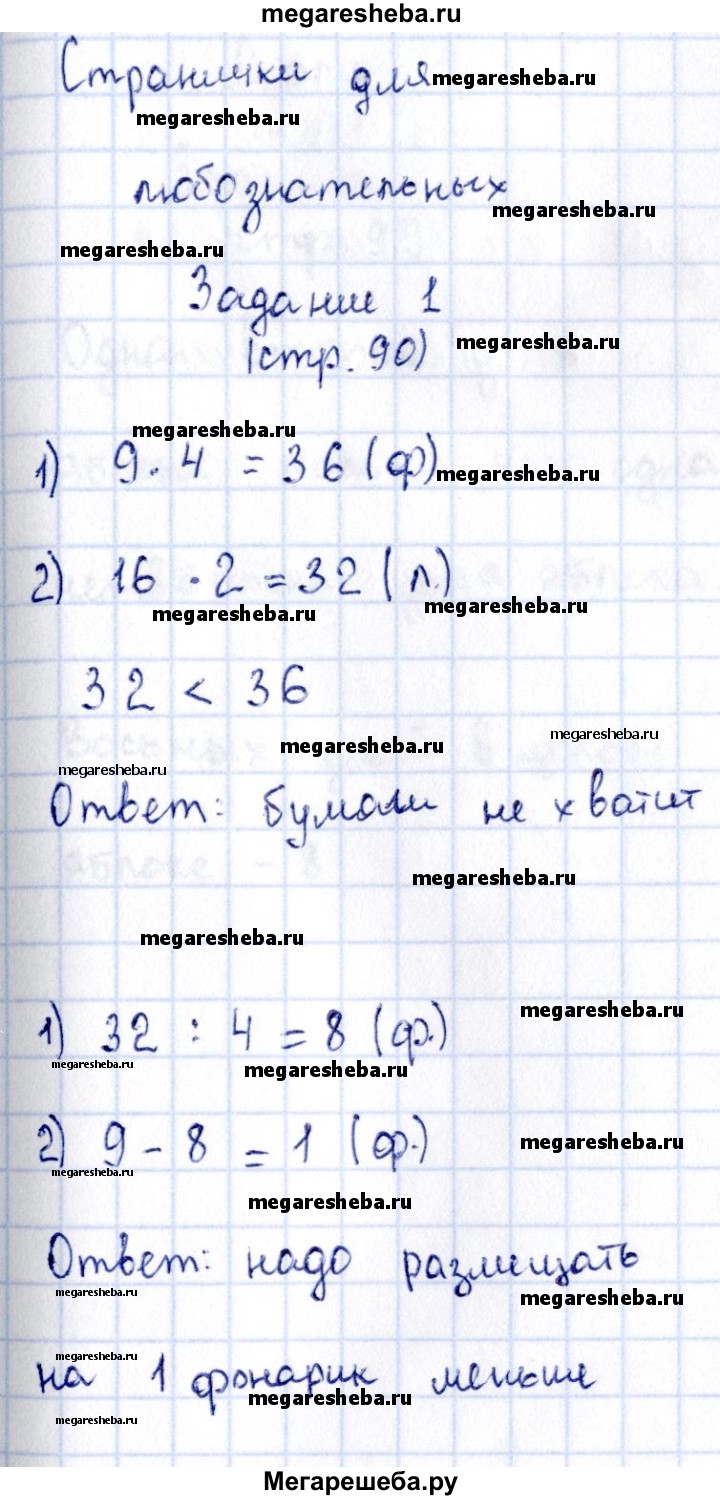 megaresheba.ru
Странички для megaresheba.ru
megaresheba.ru
любознательных
megaresheba.ru
megaresheba.ru
Задание 1
(стр. 90) megaresheba.ru
megaresheba.ru
1) 9 · 4 = 36 (ф) megaresheba.ru
2) 16 · 2 = 32 (л.)
megaresheba.ru megaresheba.ru
32 < 36
megaresheba.ru megaresheba.ru
megaresheba.ru
Ответ: бумаги не хватит
megaresheba.ru
megaresheba.ru
1) 32 : 4 = 8 (ф.) megaresheba.ru
megaresheba.ru megaresheba.ru
2) 9 - 8 = 1 (ф.) megaresheba.ru
megaresheba.ru
megaresheba.ru
Ответ: надо размещать
megaresheba.ru megaresheba.ru
megaresheba.ru
на 1 фонарик меньше
megaresheba.ru
megaresheba.ru
Мегарешеба.ру